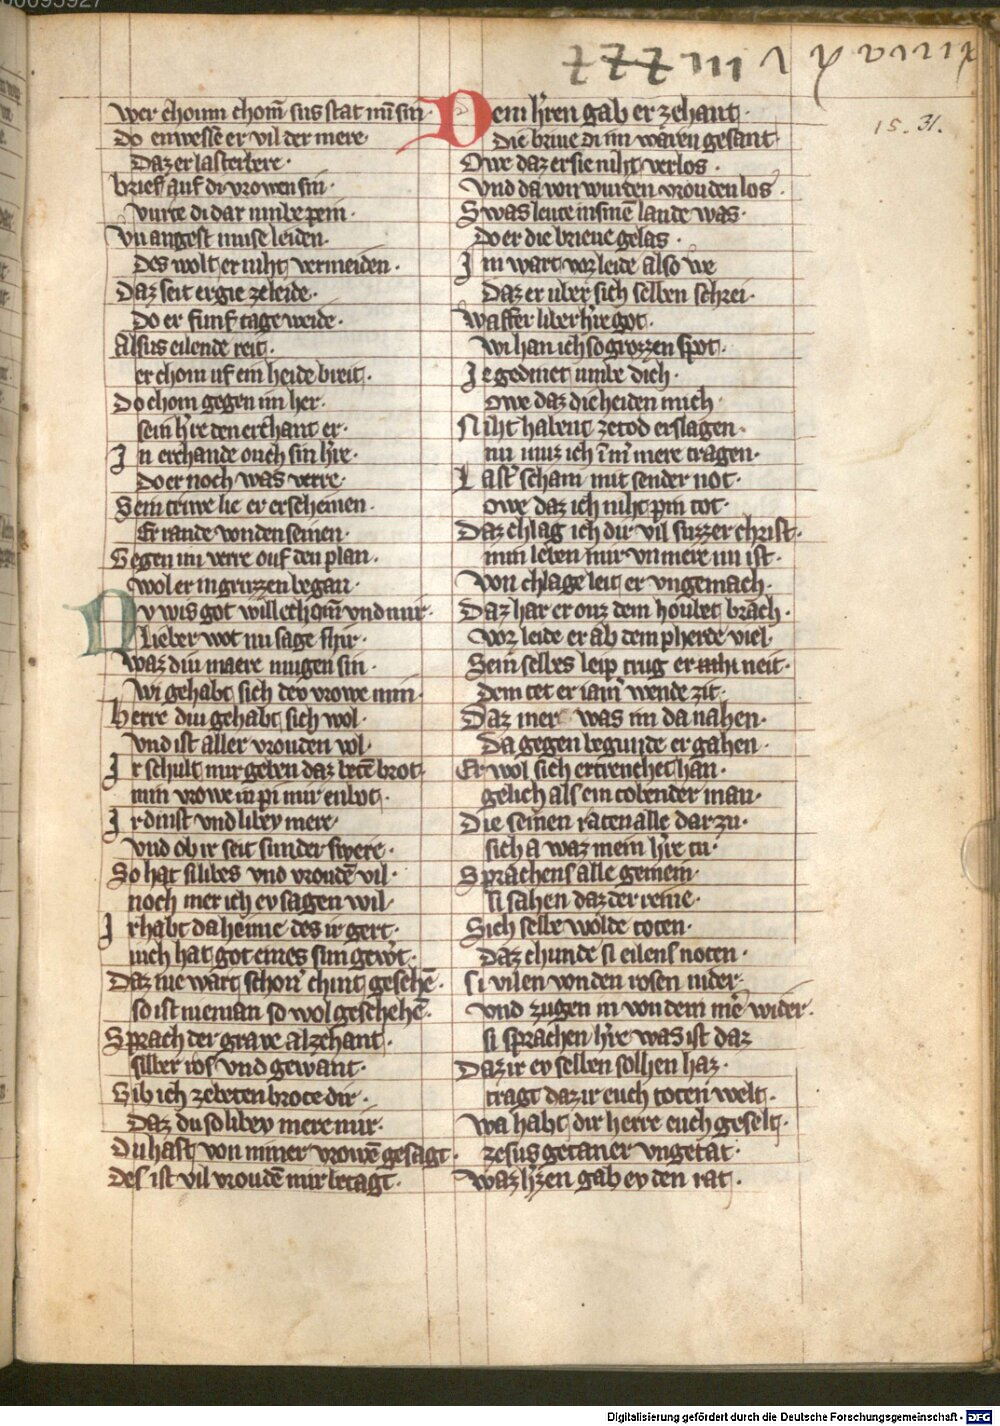 15. 31.
wer choum chom̄ sus stat mī sin.
Do enwesse er vil der mere
Daz er lasterbere.
brief auf di vrowen sin
vurte di dar inne
vn̄ angest muse leiden.
Des wolt er niht vermeiden.
Daz seit ergie ze leide.
Do er funf tage weide.
Alsus eilende reit.
er chom uf ein heide breit.
Do chom gegen im her.
sein hr̄e den erchant er.
In erchande ouch sin hr̄e.
Do er noch was verre.
Sein triwe lie er erscheinen.
Er rande von den seinen.
Gegen im verre ouf den plan.
wol er in gruzzen began.
Nv wis got willechom̄ vnd mir.
Lieber wot nu sage
waz diu maere mugen sin.
wi gehabt sich dev vrowe min.
Herre diu gehabt sich wol.
vnd ist aller vrouden vol.
Ir schult mir geben daz beten brot.
min vrowe in pi mir enbot.
Ir dinst vnd libev mere.
vnd ob ir seit sunder swere.
So hat si libes vnd vroudē vil.
noch mer ich ev sagen wil.
Ir habt da heime des ir gert.
iuch hat got eines sun gewt.
Daz nie wart schon chint gesehē.
so ist nieman so wol geschehē.
Sprach der grave al zehant.
silber ros vnd gewant.
Gib ich ze beten brote dir.
Daz du so libev mere mir.
Du hast von miner vrowē gesagt.
Des ist vil vroudē mir betagt.
Dem hr̄en gab er zehant.
Die brive di im waren gesant.
Owe daz er sie niht verlos.
Vnd da von wurden vrouden los.
Swas leute in sinē lande was.
Do er die brieve gelas.
Im wart vor leide also we
Daz er uber sich selben schrei.
Waffen liber hr̄e got.
wi han ich so grozzen spot.
Ie gedinet umbe dich.
Owe daz die heiden mich
Niht habent ze tod erslagen.
nu muz ich im̄ mere tragen.
Last scham mit sender not.
owe daz ich niht pin tot.
Daz chlag ich dir vil suzzer christ.
min leben mir vnmere nu ist.
Von chlage leit er vngemach.
Daz har er ouz dem houbet brach.
vor leide er ab dem pherde viel.
Sein selbes leip trug er neit.
Dem tet er iam wende zit.
Daz mer was im da nahen.
Da gegen begunde er gahen.
Er wol sich ertrenchet han.
gelich als ein tobender man.
Die seinen raten alle dar zu.
sich a waz mein hr̄e tu.
Sprachens alle gemein.
si sahen daz der reine.
Sich selbe wolde toten.
Daz chunde si eilens noten.
Si vilen von den rosen nider.
vnd zugen in von dem mē wider.
si sprachen hr̄e was ist daz
Daz ir ev selben solhen haz.
tragt daz ir euch toten welt.
wa habt dir herre euch geselt.
zesus getaner vngetat.
waz gab ev den rat.
Digitalisierung gefördert durch die Deutsche Forschungsgemeinschaft - DFG